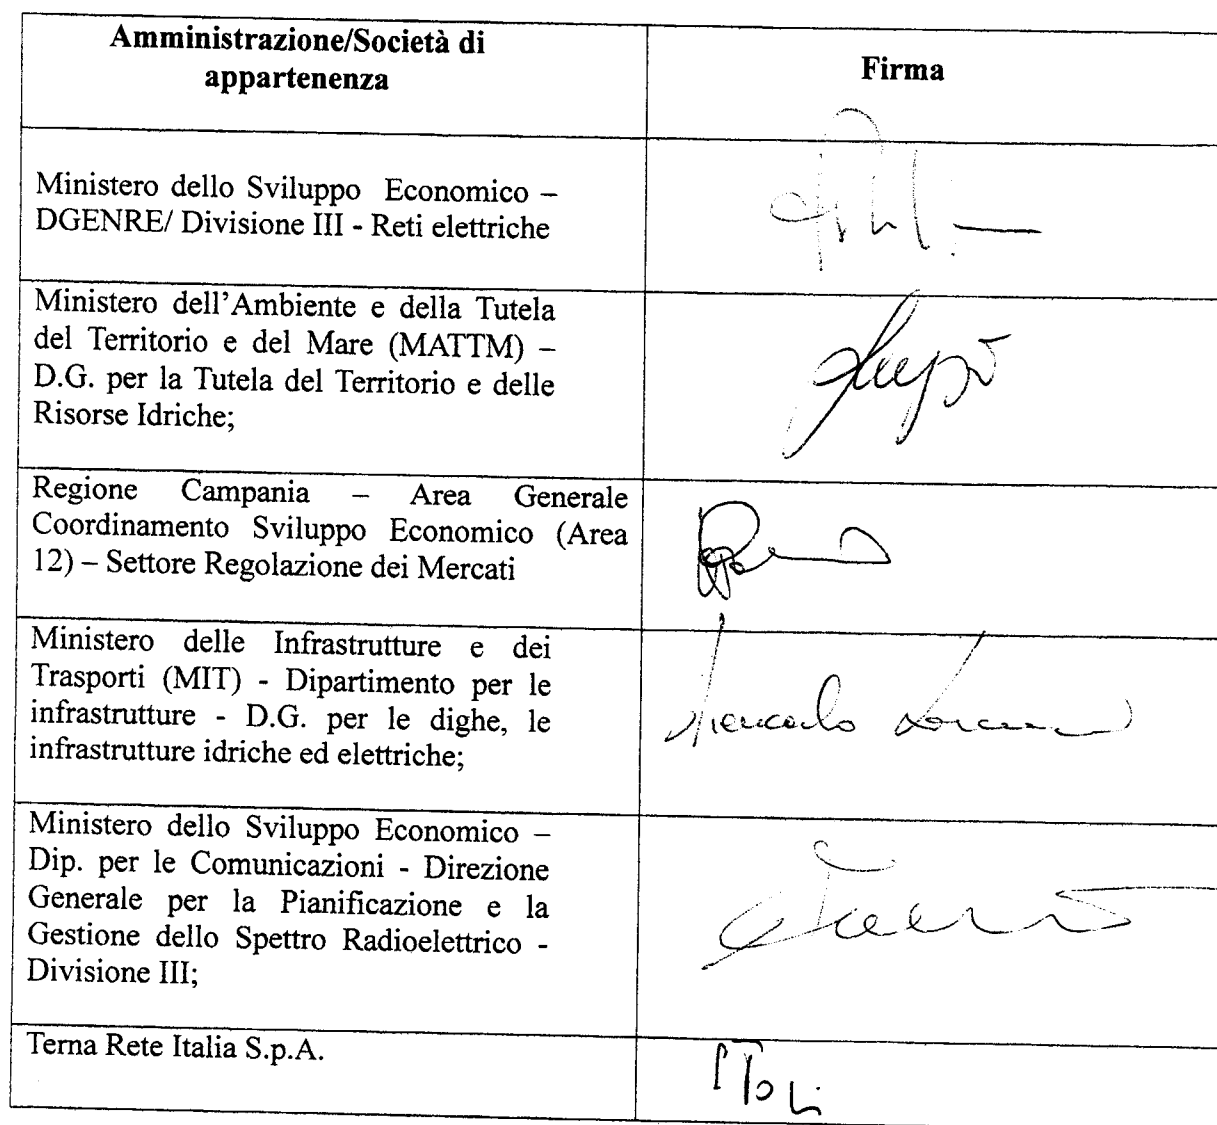 Amministrazione/Società di
appartenenza
Firma
Ministero dello Sviluppo Economico –
DGENRE/ Divisione III - Reti elettriche
Ministero dell'Ambiente e della Tutela
del Territorio e del Mare (MATTM) –
D.G. per la Tutela del Territorio e delle
Risorse Idriche;
Regione Campania – Area Generale
Coordinamento Sviluppo Economico (Area
12) – Settore Regolazione dei Mercati
Ministero delle Infrastrutture e dei
Trasporti (MIT) - Dipartimento per le
infrastrutture - D.G. per le dighe, le
infrastrutture idriche ed elettriche;
Ministero dello Sviluppo Economico –
Dip. per le Comunicazioni - Direzione
Generale per la Pianificazione e la
Gestione dello Spettro Radioelettrico -
Divisione III;
Terna Rete Italia S.p.A.